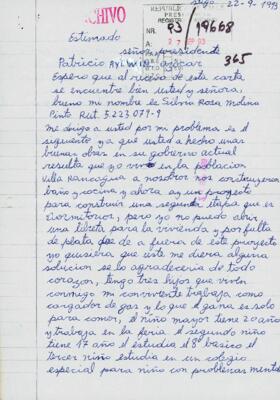 Stgo. 22-9-1993
ARCHIVO
REPUBLICA
PRESI
REGISTRO
NR. 93/19668
A: 27 SEP 93
365
Estimado
señor presidente
Patricio Aylwin Azócar
Espero que al reciso de esta carta
se encuentre bien usted y señora,
bueno mi nombre es Silvia Rosa Molina
Pinto Rut. 5.223.079-9
Me dirijo a usted por mi problema es el
siguiente y a que usted a hecho unas
buenas obras en su gobierno actual
resulta que yo vivo en la poblacion
Villa Rancagua a nosotros nos construyeron
baño y cocina y ahora ay un proyecto
para construir una segunda etapa que es
Dormitorios, pero yo no puedo abrir
una libreta para la vivienda y por falta
de plata de a fuera de este proyecto
yo quisiera que uste me diera alguna
solucion se lo agradeceria de todo
corazon, tengo tres hijos que viven
conmigo mi conviviente trabaja como
cargador de gas y lo que el gana es solo
para comer, el niño mayor tiene 20 año
y trabaja en la feria el segundo niño
tiene 17 año el estudia el 8º basico el
tercer niño estudia en un colegio
especial para niño con problemas mental